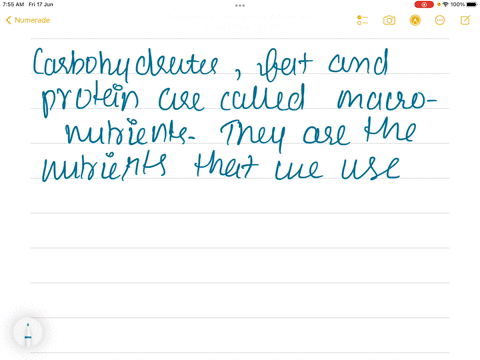 7:55 AM Fri 17 Jun
100%
Numerade
Carbohydrates, fat and
protein are called macro-
nutrients. They are the
nutrients that we use